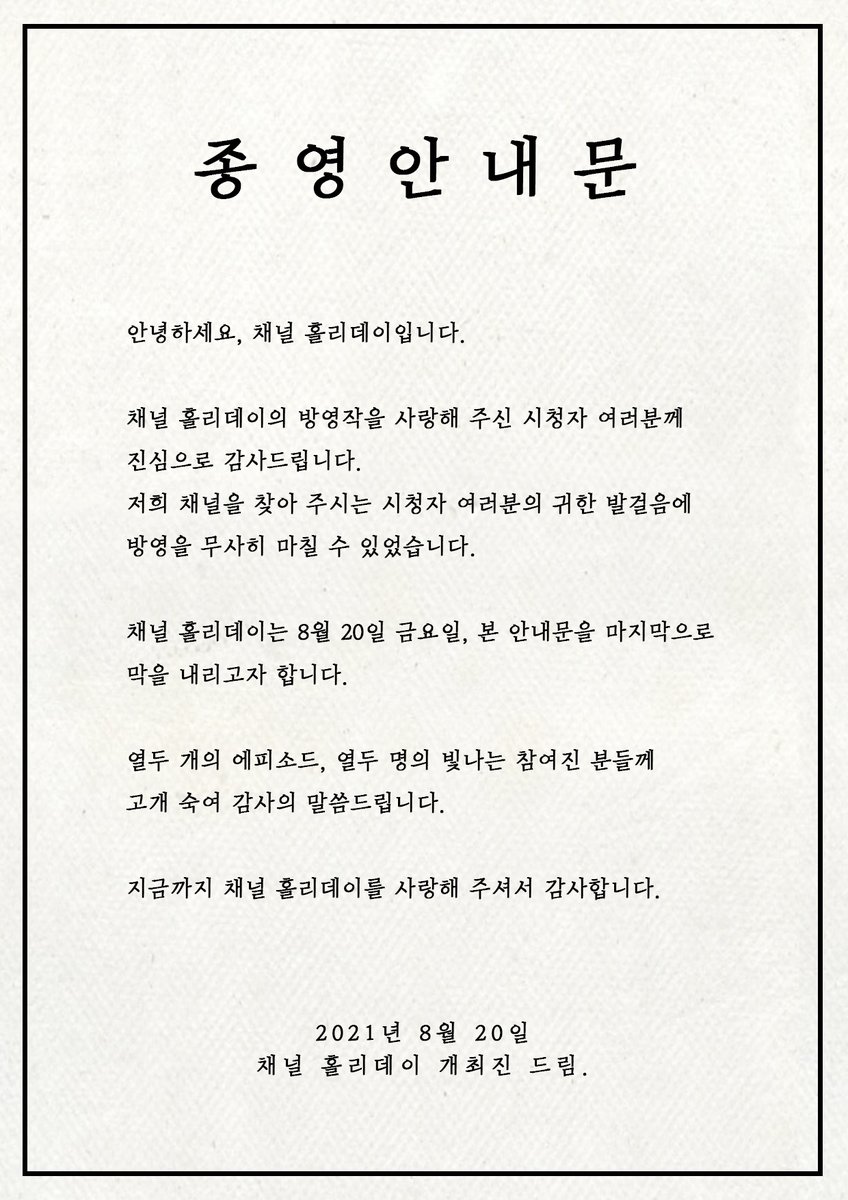 종영안내문
안녕하세요, 채널 홀리데이입니다.
채널 홀리데이의 방영작을 사랑해 주신 시청자 여러분께
진심으로 감사드립니다.
저희 채널을 찾아 주시는 시청자 여러분의 귀한 발걸음에
방영을 무사히 마칠 수 있었습니다.
채널 홀리데이는 8월 20일 금요일, 본 안내문을 마지막으로
막을 내리고자 합니다.
열두 개의 에피소드, 열두 명의 빛나는 참여진 분들께
고개 숙여 감사의 말씀드립니다.
지금까지 채널 홀리데이를 사랑해 주셔서 감사합니다.
2021년 8월 20일
채널 홀리데이 개최진 드림.